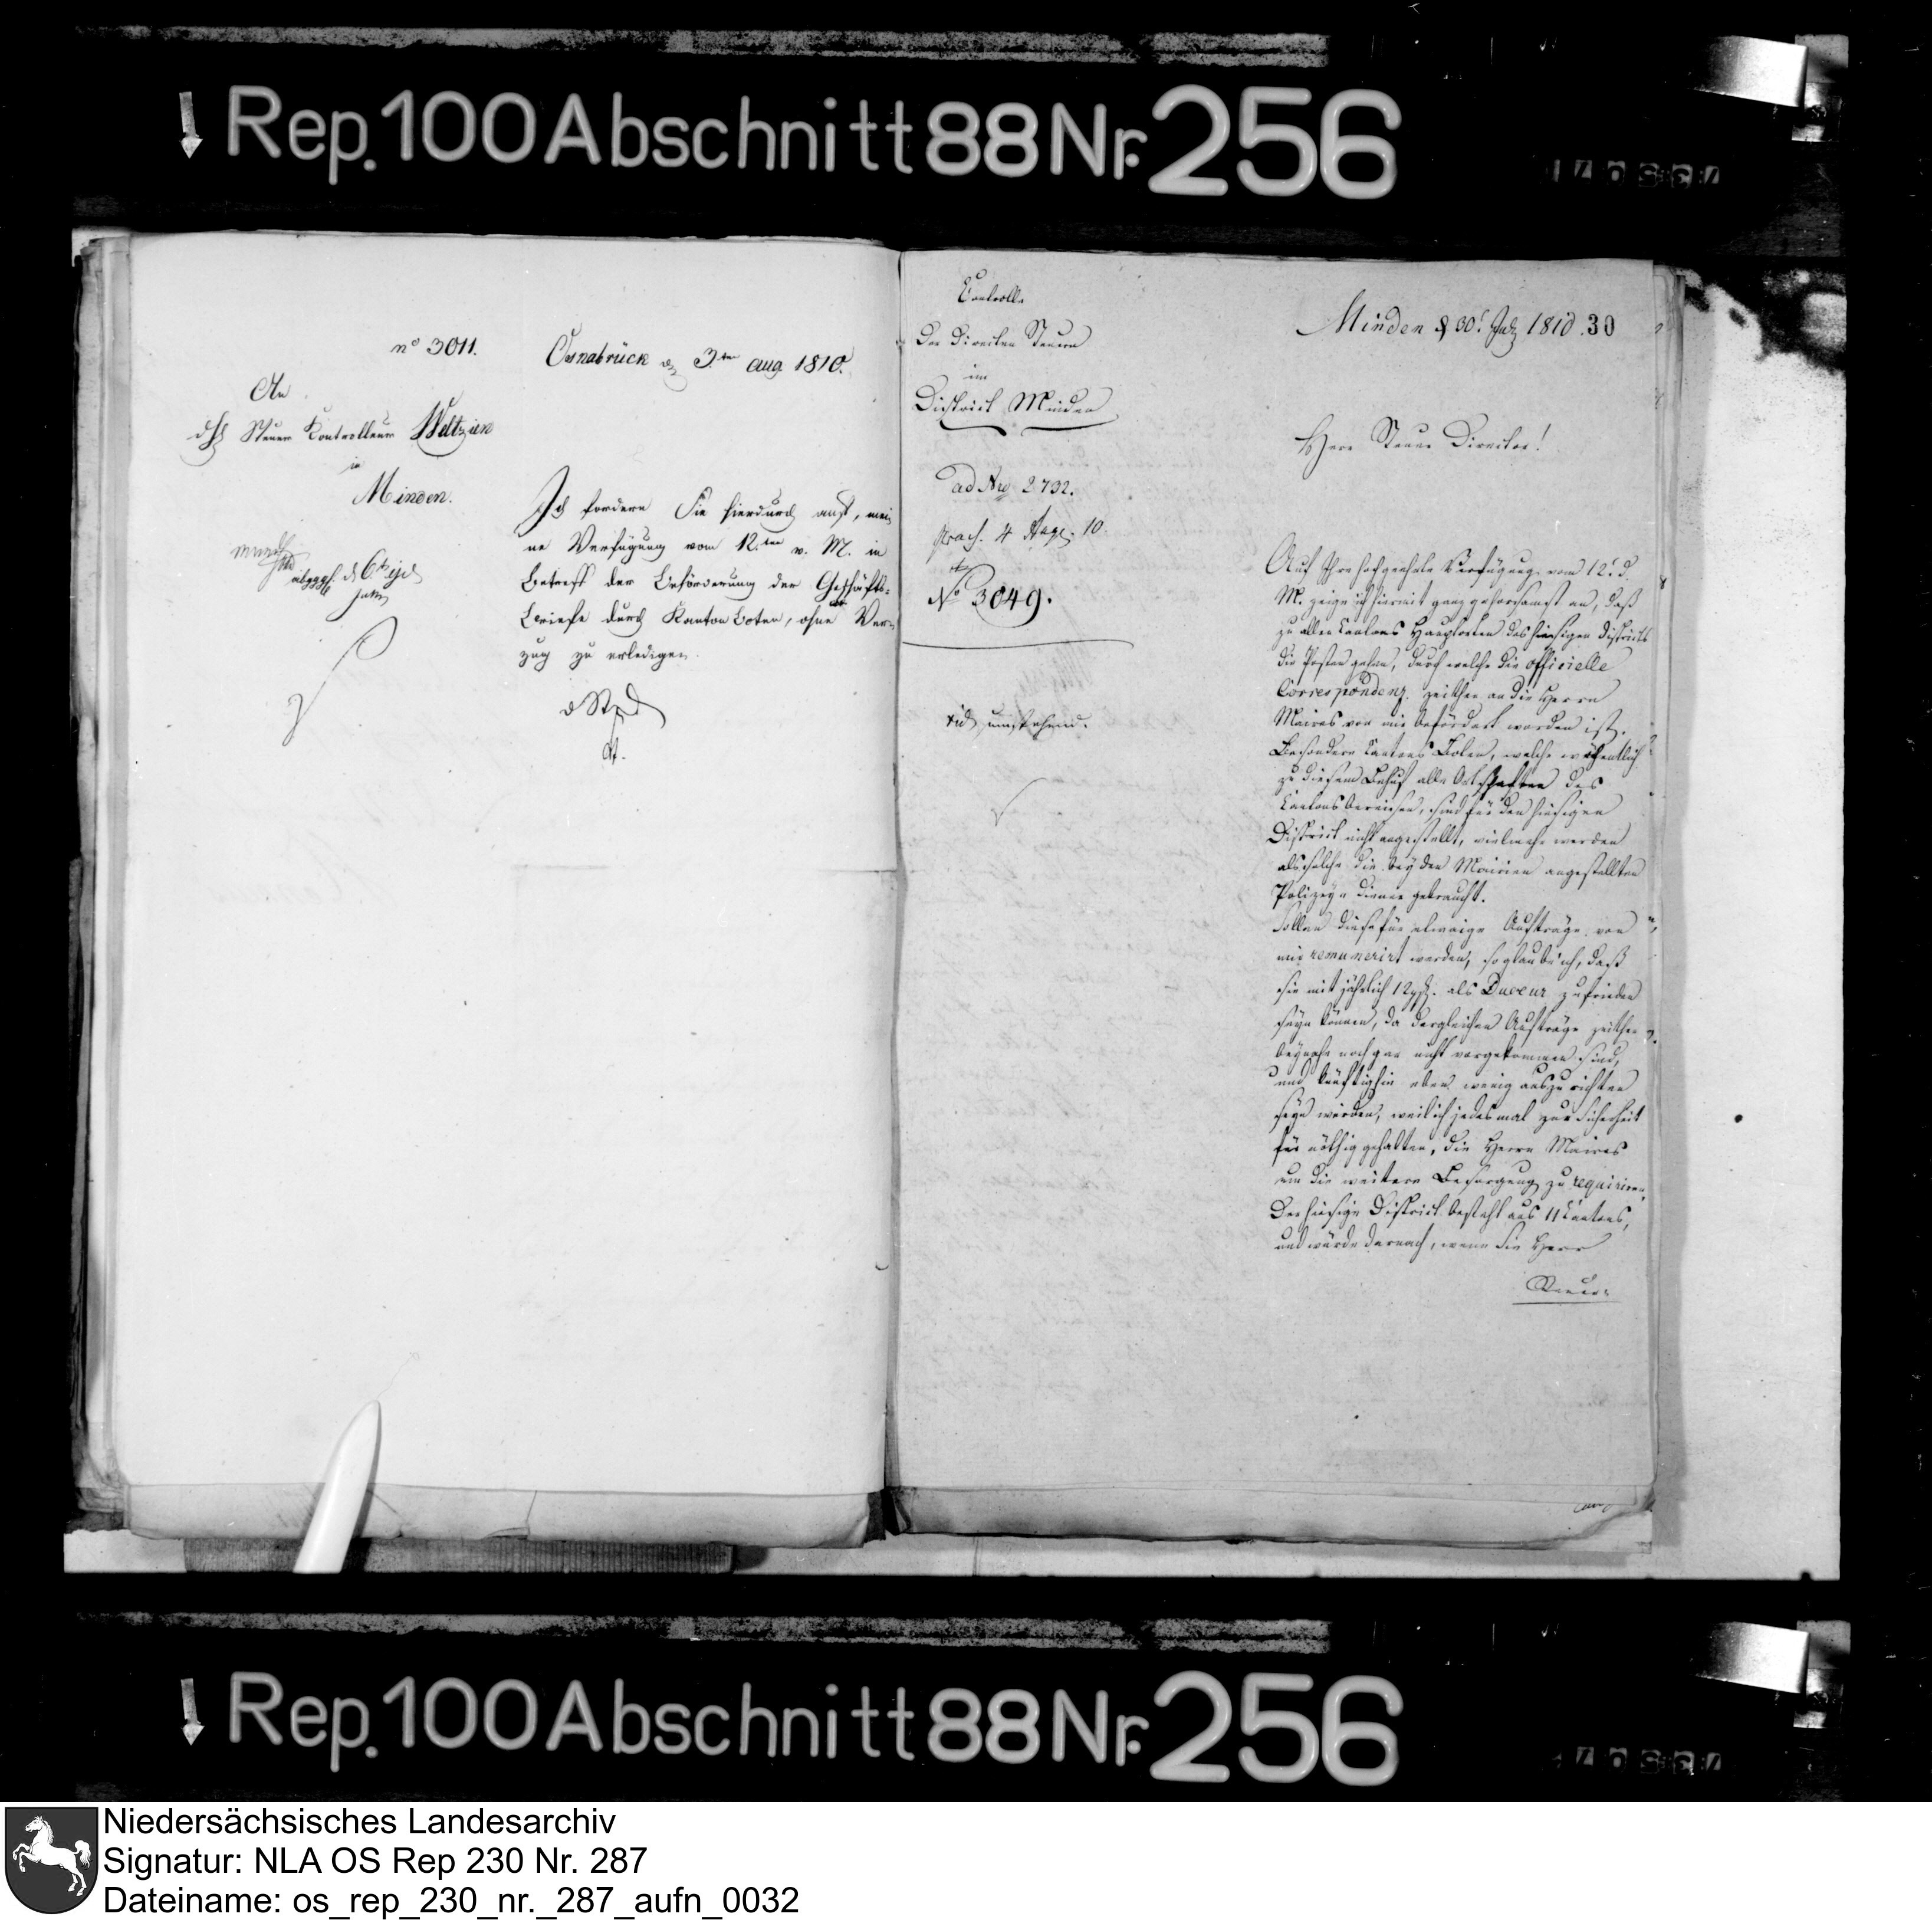 Rep. 100 Abschnitt 88 Nr. 256
no 3011.
Osnabrück d 3.ten aug. 1810.
An
Steuer Kontrolleur Weltzien
in
Minden.
Ich fordere Sie hierdurch auf, mei
ne Verfügung vom 12.ten v. M. in
Betreff der Beförderung der Geschäfts-
briefe durch Kanton boten, ohne Ver-
zug zu erledigen.
d St D
Controlle
Der Directen Steuern
im
District Minden
ad Nro 2732.
praes. 4 Aug. 10.
No 3049.
vid umstehend.
Minden d 30. July 1810. 30
Herr Steuer Director!
Auf Ihre hochgeehrte Verfügung vom 12. d.
M. zeige ich hiermit ganz gehorsamst an, daß
zu allen Cantons Hauptorten des hiesigen Districts
die Posten gehen, durch welche die officielle
Correspondenz zeither an die Herrn
Maires von mir befördert worden ist.
Besondere Cantons Boten, welche wöchentlich
zu diesem Behuf alle Ortschaften des
Cantons bereisen, sind für den hiesigen
District nicht angestellt, vielmehr werden
als solche die bey den Mairien angestellten
Polizey diener gebraucht.
Sollen diese für etwaige Aufträge von
mir remunerirt werden, so glaube ich, daß
sie mit jährlich 12 als Douceur zufrieden
seyn können, da dergleichen Aufträge zeither
beynahe noch gar nicht vorgekommen sind,
und künftighin eben wenig auszurichten
seyn werden, weil ich jedesmal zur Sicherheit
für nöthig gehalten, die Herrn Maires
um die weitere Besorgung zu requiriren.
Der hiesige District besteht aus 11 Cantons,
und würde darnach, wenn Sie Herr
Steuer-
Rep. 100 Abschnitt 88 Nr. 256
Niedersächsisches Landesarchiv
Signatur: NLA OS Rep 230 Nr. 287
Dateiname: os_rep_230_nr._287_aufn_0032